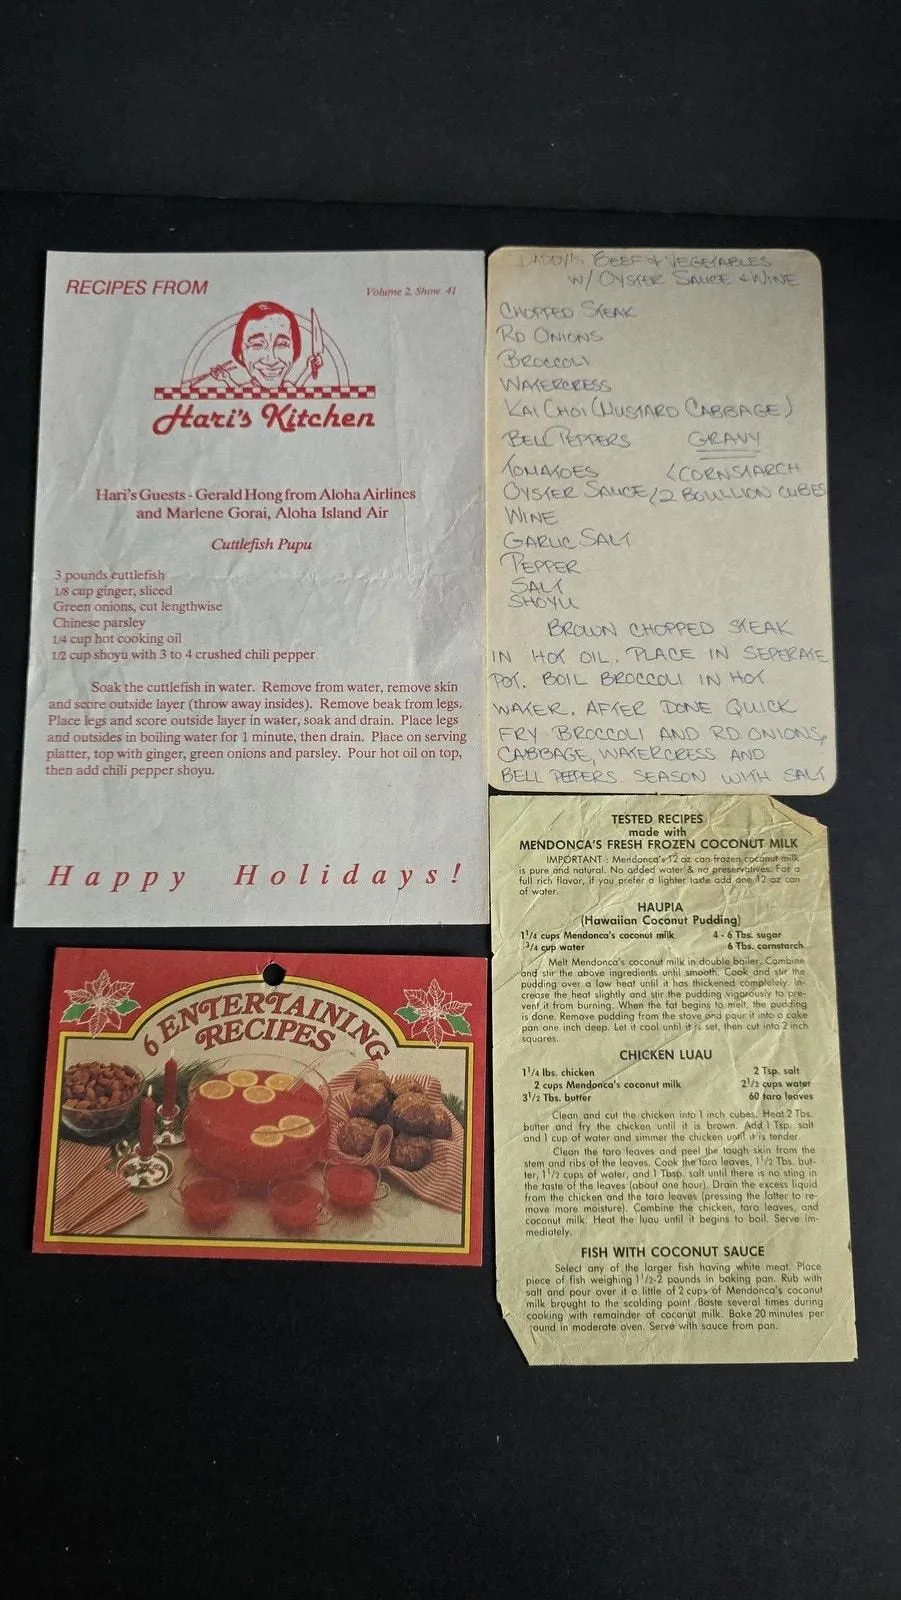 RECIPES FROM
Volume 2, Show 41
Hari's Kitchen
Hari's Guests - Gerald Hong from Aloha Airlines
and Marlene Gorai, Aloha Island Air
Cuttlefish Pupu
3 pounds cuttlefish
1/8 cup ginger, sliced
Green onions, cut lengthwise
Chinese parsley
1/4 cup hot cooking oil
1/2 cup shoyu with 3 to 4 crushed chili pepper
Soak the cuttlefish in water. Remove from water, remove skin
and score outside layer (throw away insides). Remove beak from legs.
Place legs and score outside layer in water, soak and drain. Place legs
and outsides in boiling water for 1 minute, then drain. Place on serving
platter, top with ginger, green onions and parsley. Pour hot oil on top,
then add chili pepper shoyu.
Happy Holidays!
DADDY'S BEEF & VEGETABLES
W/ OYSTER SAUCE & WINE
CHOPPED STEAK
RD ONIONS
BROCCOLI
WATERCRESS
KAI CHOI (MUSTARD CABBAGE)
BELL PEPPERS GRAVY
TOMATOES CORNSTARCH
OYSTER SAUCE 2 BOULLION CUBES
WINE
GARLIC SALT
PEPPER
SALT
SHOYU
BROWN CHOPPED STEAK
IN HOT OIL. PLACE IN SEPERATE
POT. BOIL BROCCOLI IN HOT
WATER. AFTER DONE QUICK
FRY BROCCOLI AND RD ONIONS,
CABBAGE, WATERCRESS AND
BELL PEPPERS. SEASON WITH SALT
6 ENTERTAINING
RECIPES
TESTED RECIPES
made with
MENDONCA'S FRESH FROZEN COCONUT MILK
IMPORTANT : Mendonca's 12 oz can frozen coconut milk
is pure and natural. No added water & no preservatives. For a
full rich flavor, if you prefer a lighter taste add one 12 oz can
of water.
HAUPIA
(Hawaiian Coconut Pudding)
1 1/4 cups Mendonca's coconut milk 4 - 6 Tbs. sugar
3/4 cup water 6 Tbs. cornstarch
Melt Mendonca's coconut milk in double boiler. Combine
and stir the above ingredients until smooth. Cook and stir the
pudding over a low heat until it has thickened completely. In-
crease the heat slightly and stir the pudding vigorously to pre-
vent it from burning. When the fat begins to melt, the pudding
is done. Remove pudding from the stove and pour it into a cake
pan one inch deep. Let it cool until it is set, then cut into 2 inch
squares.
CHICKEN LUAU
1 1/4 lbs. chicken 2 Tsp. salt
2 cups Mendonca's coconut milk 2 1/2 cups water
3 1/2 Tbs. butter 60 taro leaves
Clean and cut the chicken into 1 inch cubes. Heat 2 Tbs.
butter and fry the chicken until it is brown. Add 1 Tsp. salt
and 1 cup of water and simmer the chicken until it is tender.
Clean the taro leaves and peel the tough skin from the
stem and ribs of the leaves. Cook the taro leaves, 1 1/2 Tbs. but-
ter, 1 1/2 cups of water, and 1 Tbsp. salt until there is no sting in
the taste of the leaves (about one hour). Drain the excess liquid
from the chicken and the taro leaves (pressing the latter to re-
move more moisture). Combine the chicken, taro leaves, and
coconut milk. Heat the luau until it begins to boil. Serve im-
mediately.
FISH WITH COCONUT SAUCE
Select any of the larger fish having white meat. Place
piece of fish weighing 1 1/2-2 pounds in baking pan. Rub with
salt and pour over it a little of 2 cups of Mendonca's coconut
milk brought to the scalding point. Baste several times during
cooking with remainder of coconut milk. Bake 20 minutes per
ound in moderate oven. Serve with sauce from pan.